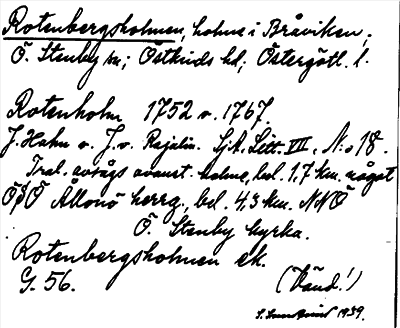 Rotenbergsholmen, holme i Bråviken,
Ö. Stenby sn; Östkinds hd, Östergötl. l.
Rotenholm 1752 o. 1767.
J. Hahn o. J. v. Rajalin. SjA. Litt. VII, N:o 18.
Tral. avsågs ovannt. holme, bel. 1,7 km. något
OSO Ållonö herrg., bel. 4,3 km. NNO
Ö. Stenby kyrka.
Rotenbergsholmen ek.
G. 56. (Vänd!)
1939.